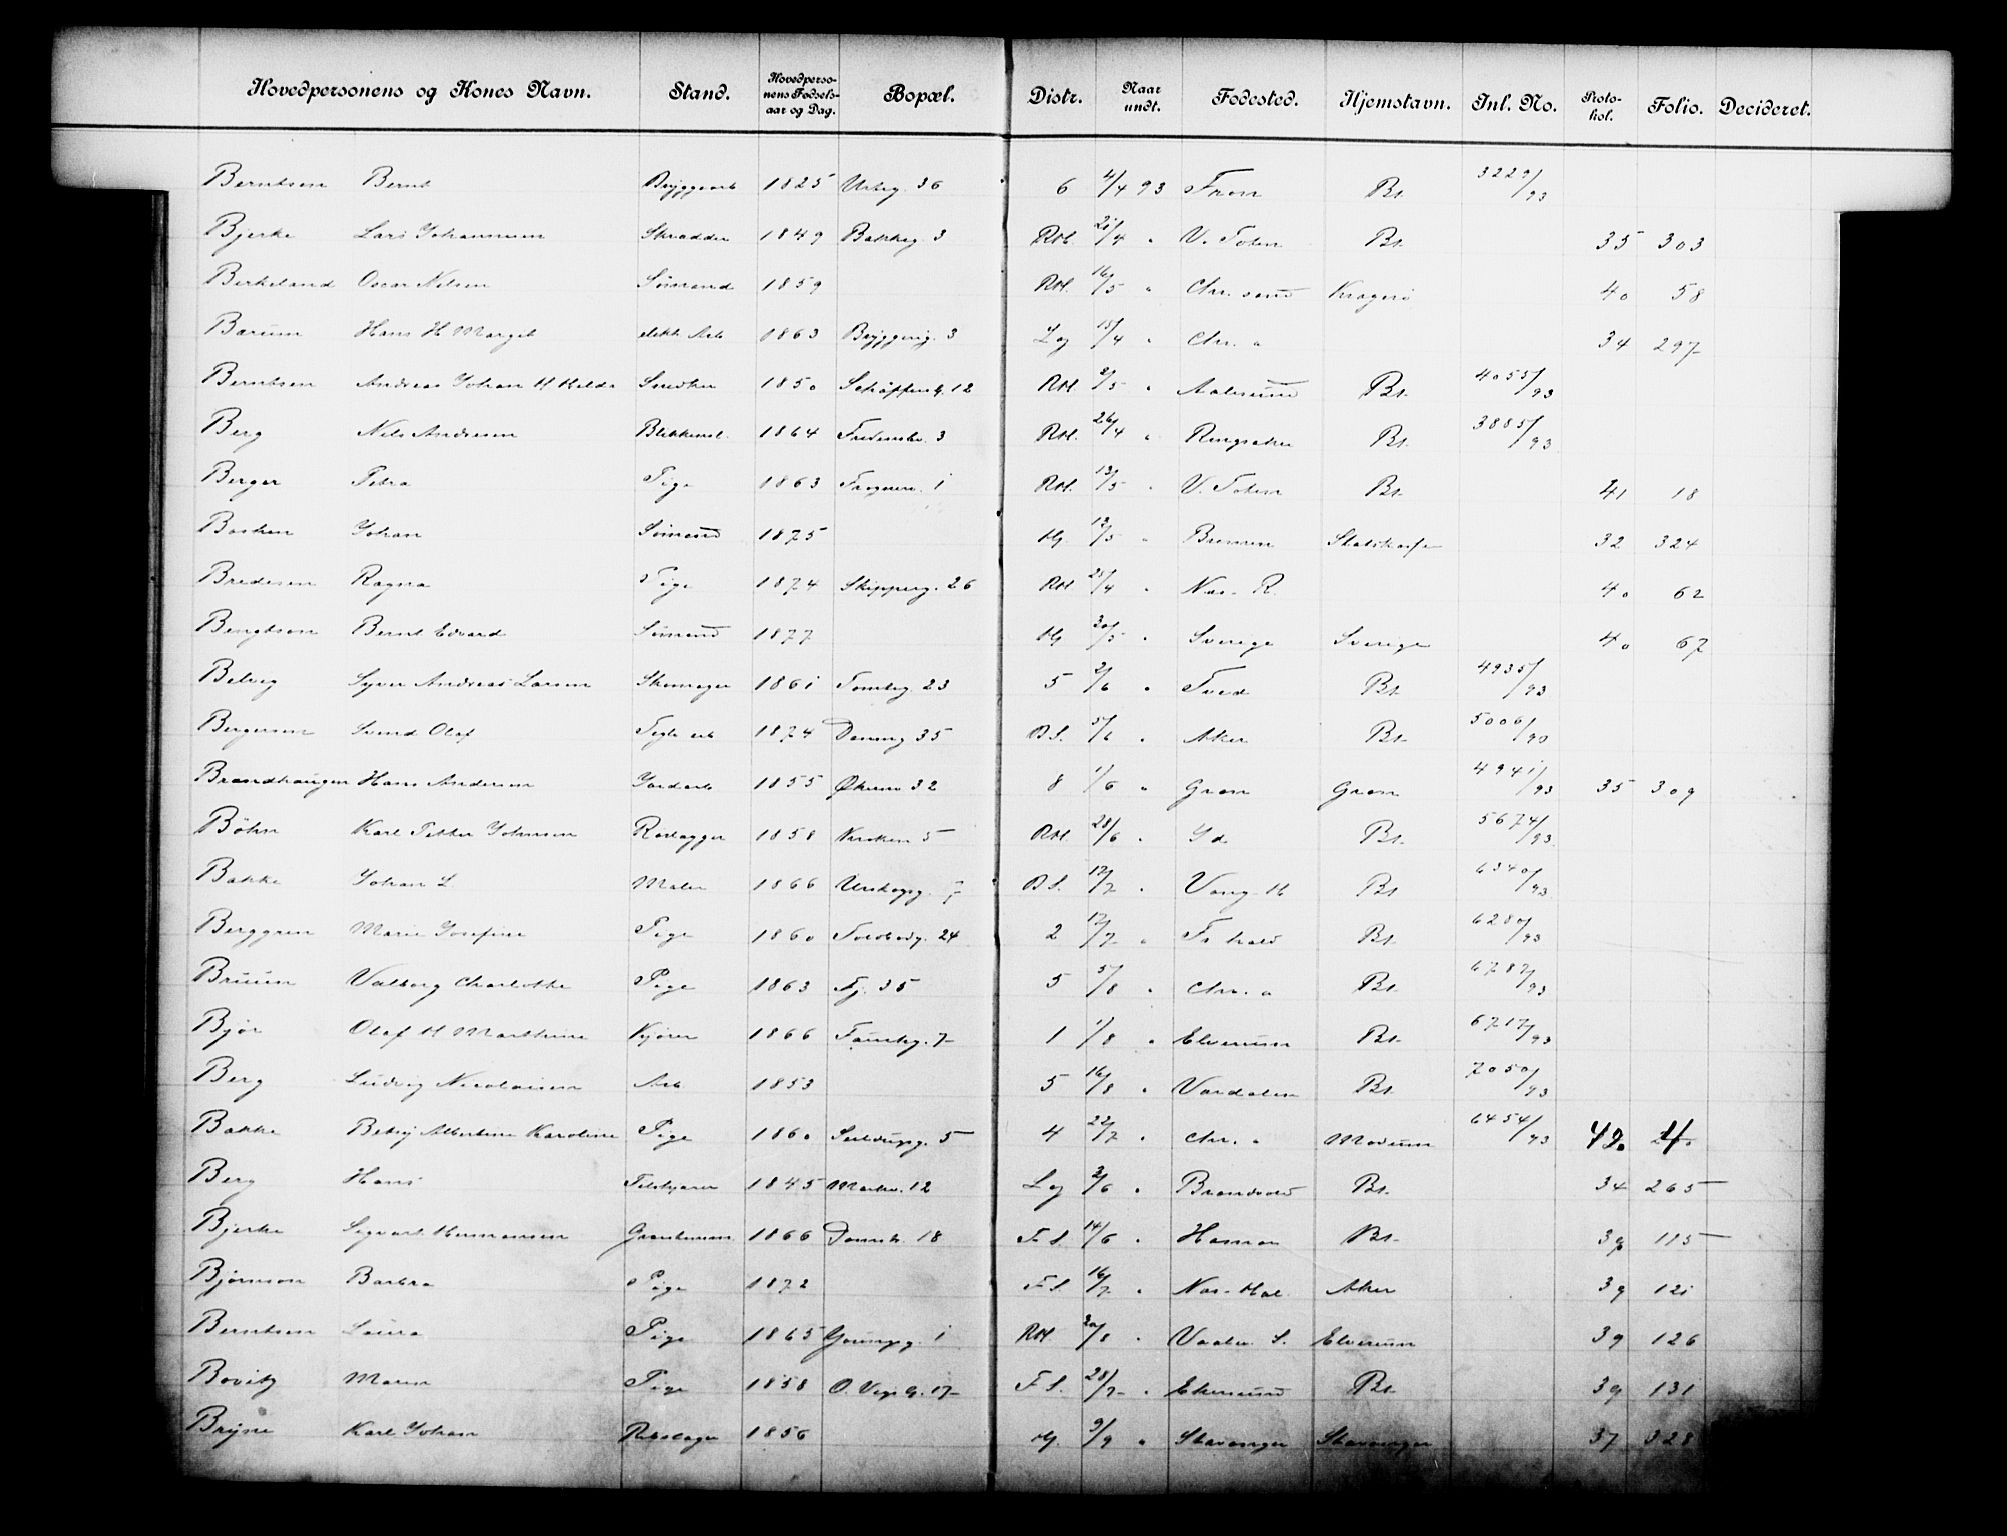 Hovedpersonens og Kones Navn. Stand. Hovedpersonens Fødselsaar og Dag. Bopæl. Distr. Naar undt. Fødested. Hjemstavn. Inl. No. Protokol. Folio. Decideret.
Berntsen Bernt Bryggearb 1825 Urteg. 36 6 4/4 93 Fron Bt. 3229/93
Bjerke Lars Johannesen Skrædder 1849 Bakkeg. 3 RH. 21/4 " V. Toten Bt. 35 303
Birkeland Oscar Nilsen Sømand 1859 RH. 16/5 " Chr. sand Kragerø 40 58
Bærum Hans H Margit elekt. Arb 1863 Bryggerig. 3 Lg 15/4 " Chr. a 34 297
Berntsen Andreas Johan H Hilda Snedker 1850 12 RH. 2/5 " Aalesund Bt. 4055/93
Berg Nils Andresen Blikkensl. 1864 3 RH. 26/4 " Ringsaker Bt. 3885/93
Berger Petra Pige 1863 Frognerv. 1 RH. 13/5 " V. Toten Bt. 41 18
Johan Sømand 1875 Hj. 12/5 " Bremen 32 324
Bredesen Ragna Pige 1874 Skipperg. 26 RH 25/4 " Næs. R. 40 62
Bengtson Bernt Edvard Sømand 1877 Hj 30/5 " Sverige Sverige 40 67
Belvig Syver Andreas Larsen Skomager 1861 Tomteg. 23 5 2/6 " Tved Bt. 4935/93
Bergersen Svend Olaf Tegls arb 1874 35 B S. 5/6 " Aker Bt. 5006/93
Brandhaugen Hans Andersen Jordarb 1855 Økernv 32 8 1/6 " Gran Gran 4941/93 35 309
Bøhn Karl Petter Johnsen 1858 5 RH. 28/6 " Id Bt. 5674/93
Bakke Johan L Maler 1866 Urskogsg. 7 B S. 17/7 " Vang. H Bt 6340/93
Berggren Marie Josefine Pige 1860 Toldbodg. 24 2 17/7 " Fr hald Bt. 6280/93
Bruun Valborg Charlotte Pige 1863 35 5 5/8 " Chr. a Bt. 6787/93
Bjør Olaf H Marthine Kjører 1866 7 1 1/8 " Elverum Bt. 6717/93
Berg Ludvig Nicolaisen Arb 1853 5 16/8 " Værdalen Bt. 7050/93
Bakke Betsy Albertine Karoline Pige 1860 Seilduksg. 5 4 22/7 " Chr. a Modum 6454/93 4
Berg Hans 1845 Markv. 12 Lg 3/6 " Brandvold Bt. 34 265
Bjerke Sigvart Hermansen 1866 18 F S. 14/6 " Hamar Bt. 39 115
Bjørnson Barbra Pige 1872 F S. 16/7 " Næs. Hal. Aker 39 121
Berntsen Laura Pige 1865 Youngsg. 1 RH. 30/8 " Vaaler. S. Elverum 39 126
Bovitz Maren Pige 1858 17 F S. 28/7 " Ekersund Bt. 39 131
Bryne Karl Johan 1856 Hj. 9/9 " Stavanger Stavanger 37 328